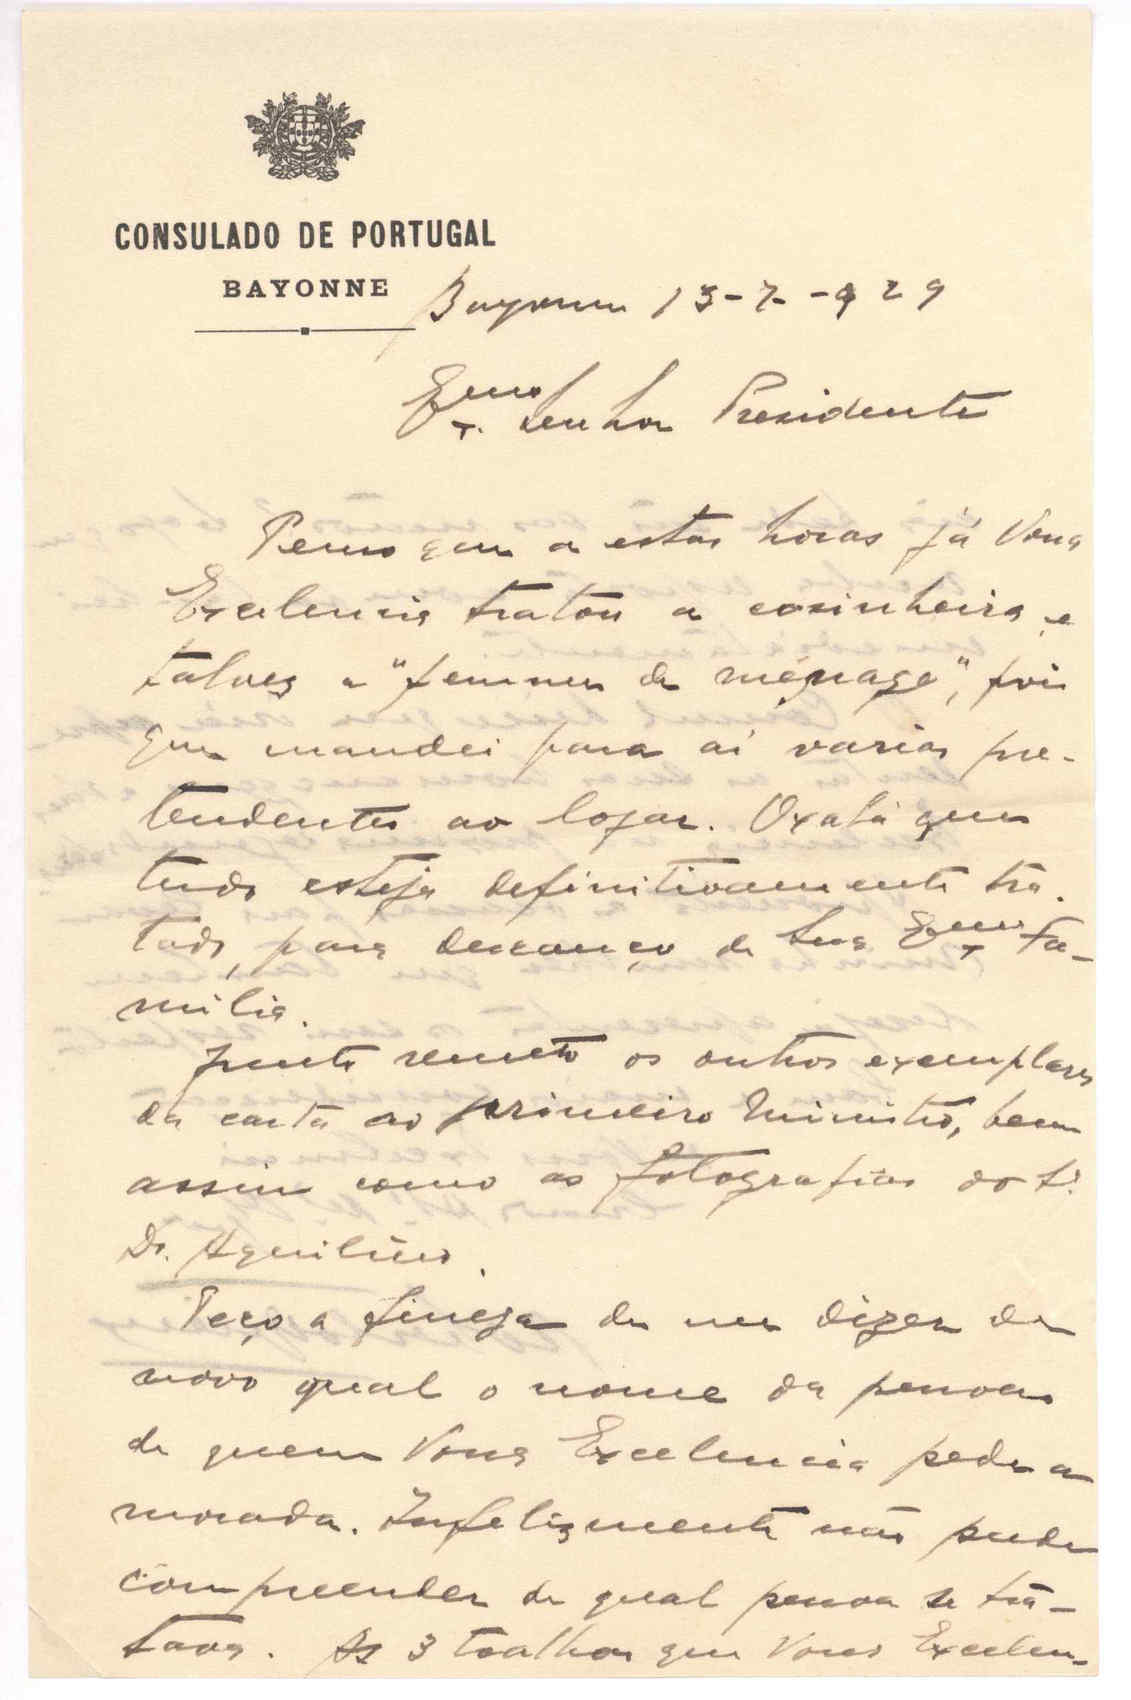 CONSULADO DE PORTUGAL
BAYONNE
Bayonne 13-7-929
Exmo Senhor Presidente
Penso que a estas horas já Vossa
Excelencia tratou a cosinheira e
talvez a "femme de ménage", pois
que mandei para aí varias pre-
tendentes ao logar. Oxalá que
tudo esteja definitivamente tra-
tado, para descanço de Sua Exma Fa-
milia.
Junto remeto os outros exemplares
da carta ao primeiro Ministro, bem
assim como as fotografias do Sr.
Dr. Aquilino.
Peço a fineza de me dizer de
novo qual o nome da pessoa
de quem Vossa Excelencia pede a
morada. Infelizmente não pude
compreender de qual pessoa se tra-
tava. As 3 toalhas que Vossa Excelen-